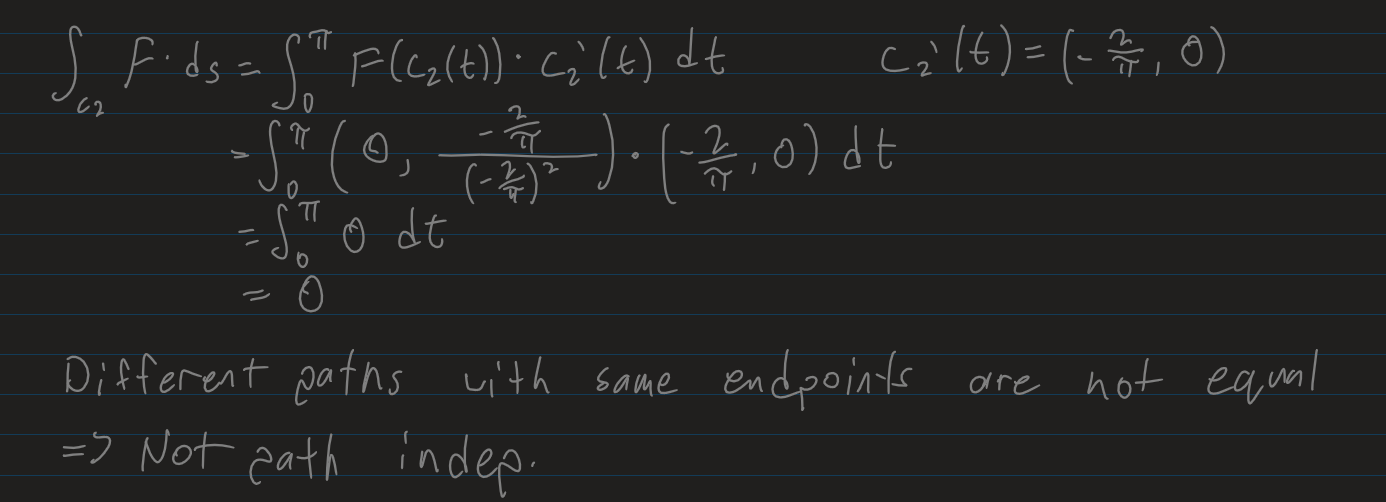 ∫_{c₂} F · ds = ∫₀^π F(c₂(t)) · c₂'(t) dt    c₂'(t) = (-2/π, 0)
= ∫₀^π (0, (-2/π)/(-2/π)²) · (-2/π, 0) dt
= ∫₀^π 0 dt
= 0
Different paths with same endpoints are not equal
=> Not path indep.